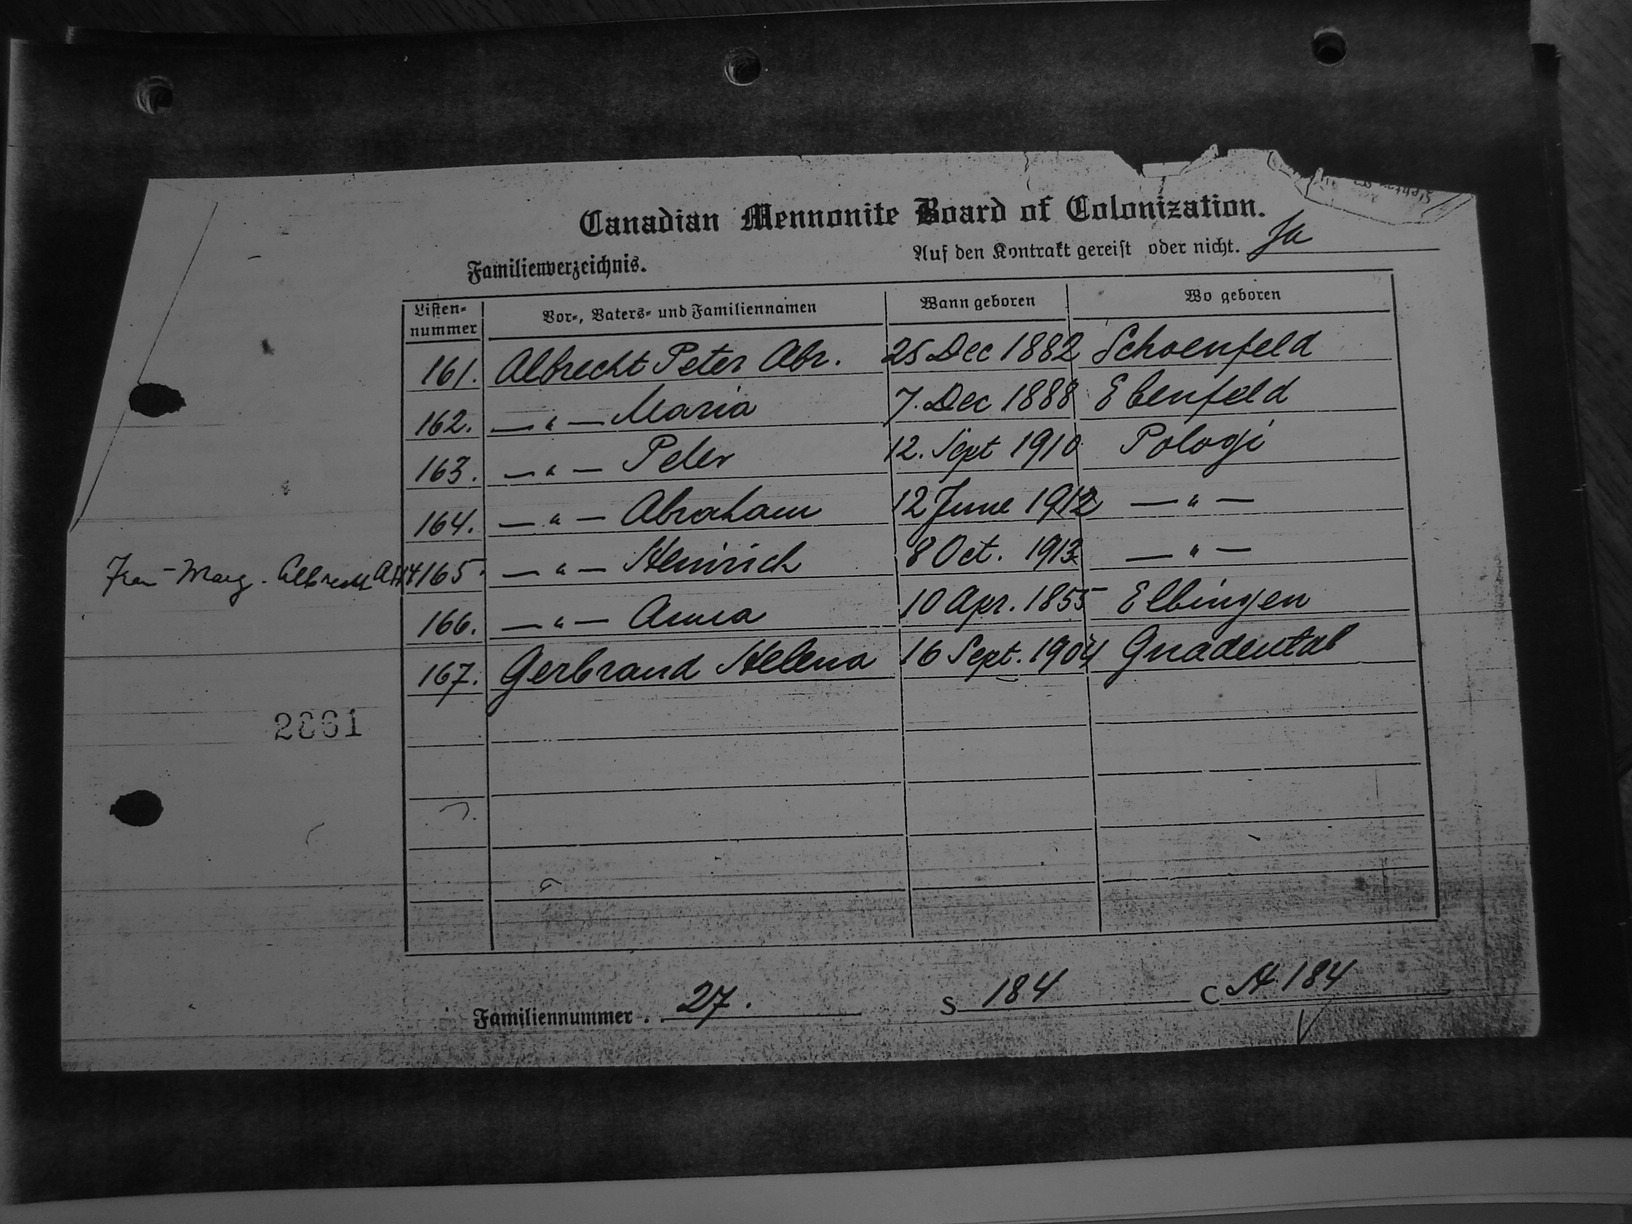 Canadian Mennonite Board of Colonization.
Auf den Kontrakt gereist oder nicht. Ja
Familienverzeichnis.
Listen-nummer Vor-, Vaters- und Familiennamen Wann geboren Wo geboren
161. Albrecht Peter Abr. 25 Dec 1882 Schoenfeld
162. — " — Maria 7. Dec 1888 Ebenfeld
163. — " — Peter 12. Sept 1910 Pologi
164. — " — Abraham 12 June 1912 — " —
Marg. Albrecht 165. — " — Heinrich 8 Oct. 1913 — " —
166. — " — Anna 10 Apr. 1855 Elbingen
167. Gerbrand Helena 16 Sept. 1904 Gnadental
2661
Familiennummer. 27. S 184 C A 184